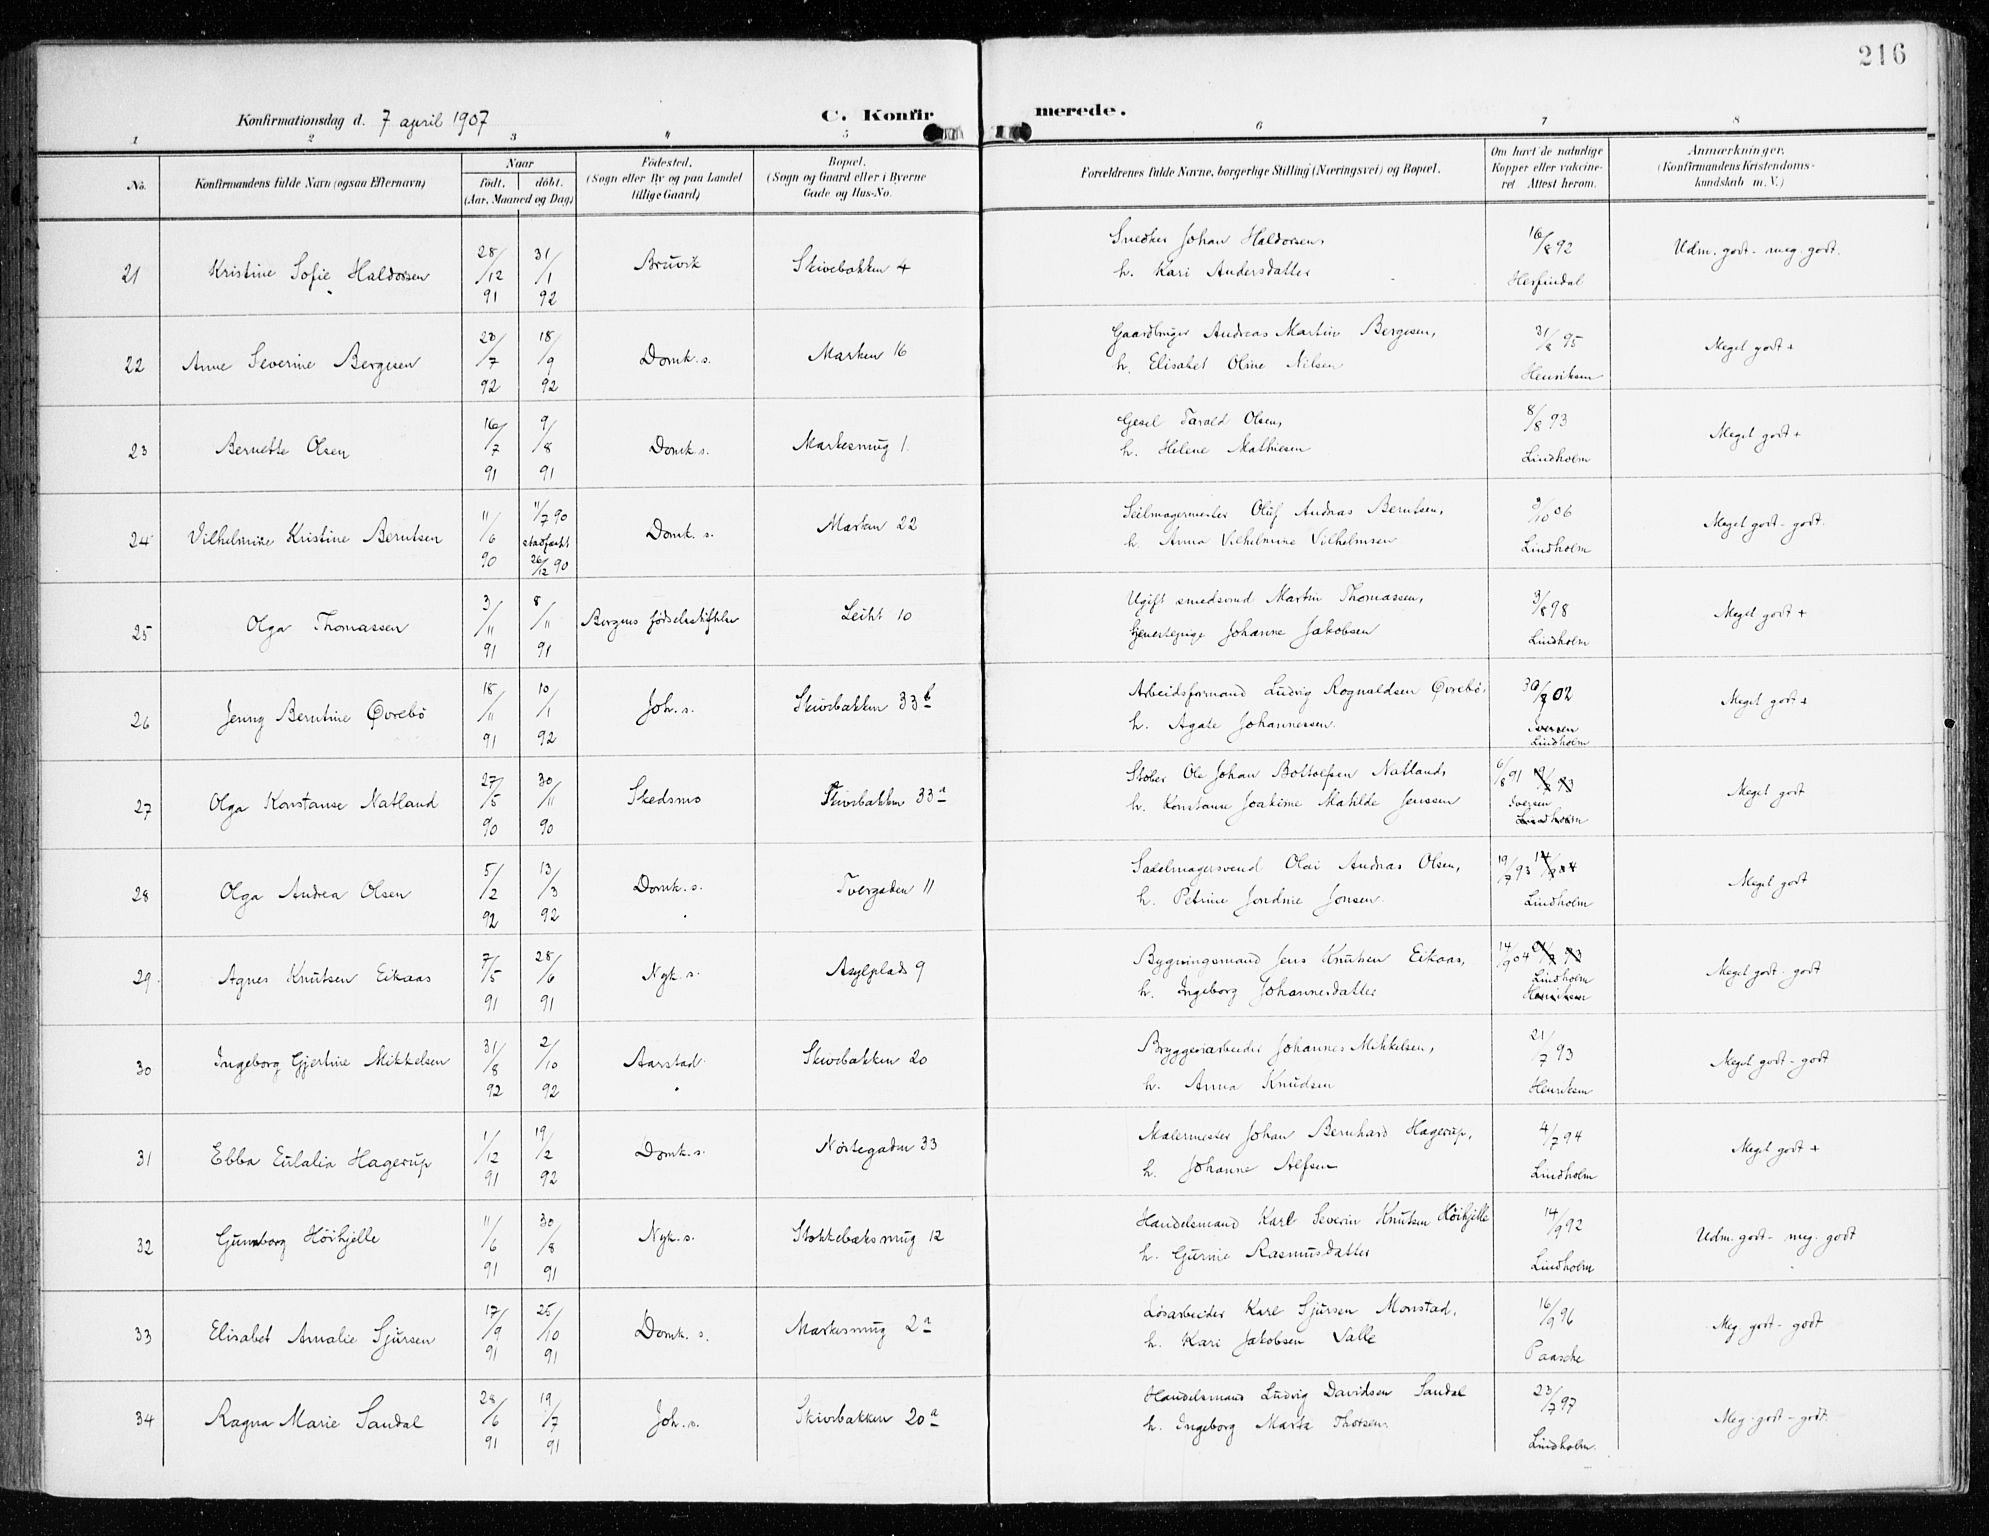 216
Konfirmationsdag d. 7 april 1907
C. Konfirmerede.
1 2 3 " 5 6 7 8
No.
Konfirmandens fulde Navn (ogsaa Efternavn)
Naar
født. døbt.
(Aar, Maaned og Dag)
Fødested.
(Sogn eller By og paa Landet
tillige Gaard)
Bopæl.
(Sogn og Gaard eller i Byerne
Gade og Hus-No.
Forældrenes fulde Navne, borgerlige Stilling (Næringsvei) og Bopæl.
Om havt de naturlige
Kopper eller vakcine-
ret Attest herom.
Anmærkninger.
(Konfirmandens Kristendoms-
kundskab m. V.)
21 Kristine Sofie Haldorsen 28/12 91 31/1 92 Bruvik Skivebakken 4
Snedker Johan Haldorsen,
h. Kari Andersdatter
16/8 92
Herfindal
Udm. godt - meg. godt.
22 Anne Severine Bergesen 23/7 92 18/9 92 Domk. s. Marken 16
Gaardbruger Andreas Martin Bergesen,
h. Elisabet Oline Nilsen
31/8 95
Henriksen
Meget godt +
23 Bernette Olsen 16/7 91 9/8 91 Domk. s. Markesmug 1.
Gesel Tarald Olsen,
h. Helene Mathiesen
8/8 93
Lindholm
Meget godt +
24 Vilhelmine Kristine Berntsen 11/6 90 11/7 90 stadfæstt 26/12 90 Domk. s. Marken 22
Seilmagermester Oluf Andreas Berntsen,
h. Anna Vilhelmine Vilhelmsen
9/10 06
Lindholm
Meget godt - godt.
25 Olga Thomassen 3/11 91 8/11 91 Bergens fødselsstiftelse Leiht 10
Ugift smedsvend Martin Thomassen,
tjenestepige Johanne Jakobsen
9/8 98
Lindholm
Meget godt +
26 Jenny Berntine Øvrebø 18/11 91 10/1 92 Joh. s. Skivebakken 33 b
Arbeidsformand Ludvig Rognaldsen Øvrebø,
h. Agate Johannessen.
02
Iversen
Lindholm
Meget godt +
27 Olga Konstanse Natland 27/5 90 30/11 90 Skedsmo Skivebakken 33 a
Støber Ole Johan Bottolfsen Natland,
h. Konstanse Joakime Matilde Jenssen
6/8 91
Iversen
Lindholm
Meget godt
28 Olga Andrea Olsen 5/2 92 13/3 92 Domk. s. Tvergaden 11
Sadelmagersvend Olai Andreas Olsen,
h. Petrine Jondine Jonsen.
19/7 93
Lindholm
Meget godt
29 Agnes Knutsen Eikaas 7/5 91 28/6 91 Nyk. s. Asylplads 9
Bygningsmand Jens Knutsen Eikaas,
h. Ingeborg Johannesdatter
14/9 04
Lindholm
Henriksen
Meget godt - godt
30 Ingeborg Gjertine Mikkelsen 31/8 92 2/10 92 Aarstad Skivebakken 20
Bryggeriarbeider Johannes Mikkelsen,
h. Anna Knudsen
21/7 93
Henriksen
Meget godt - godt
31 Ebba Eulalia Hagerup 1/12 91 19/2 92 Domk. s. Nøstegaden 33
Malermester Johan Bernhard Hagerup,
h. Johanne Alfsen
4/7 94
Lindholm
Meget godt +
32 Gunnborg Höihjelle 11/6 91 30/8 91 Nyk. s. Stokkebæksmug 12
Handelsmand Karl Severin Knutsen Höihjelle
h. Gurine Rasmusdatter
14/9 92
Lindholm
Udm. godt - meg. godt
33 Elisabet Amalie Sjursen 17/9 91 25/10 91 Domk. s. Markesmug 2 a
Løsarbeider Karl Sjursen Monstad,
h. Kari Jakobsen Salle
16/9 96
Paasche
Meg. godt - godt
34 Ragna Marie Sandal 28/6 91 19/7 91 Joh. s. Skivebakken 20 a
Handelsmand Ludvig Davidsen Sandal
h. Ingeborg Marta Thorsen.
23/7 97
Lindholm.
Meg. godt - godt.